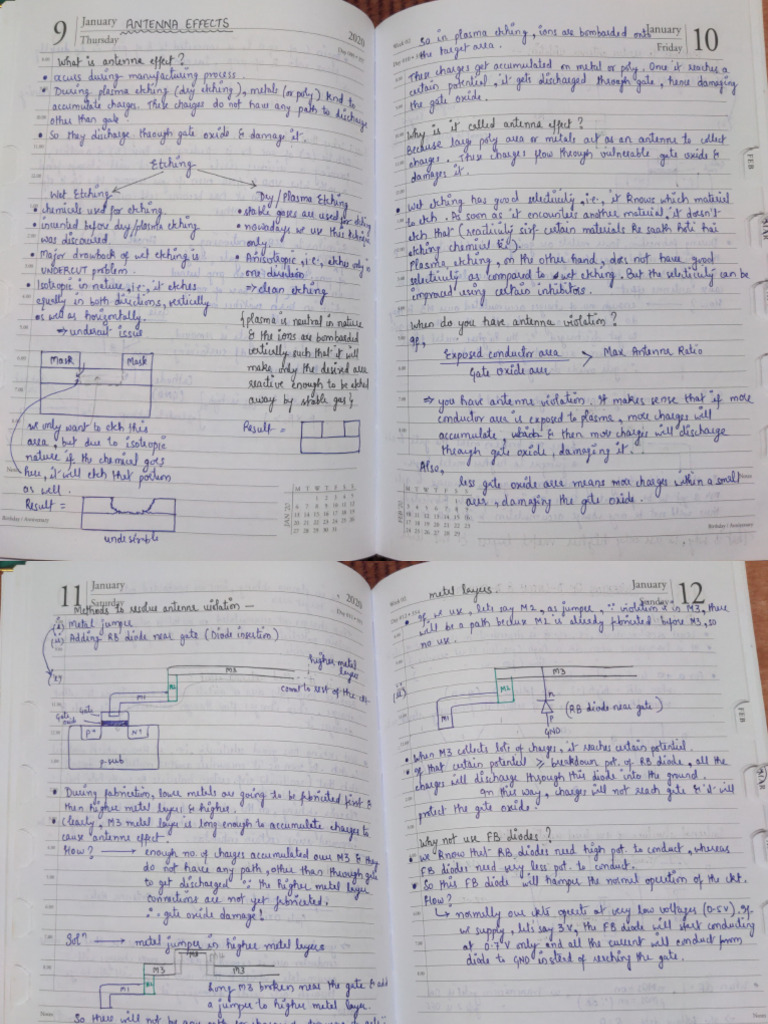 9 January ANTENNA EFFECTS 2020
Thursday
What is antenna effect?
• occurs during manufacturing process.
• During plasma etching (dry etching), metals (or poly) tend to
accumulate charges. These charges do not have any path to discharge
other than gate.
• So they discharge through gate oxide & damage it.
Etching
Wet Etching
• chemicals used for etching.
• invented before dry/plasma etching
was discovered.
• Major drawback of wet etching is
UNDERCUT problem.
• Isotropic in nature, i.e., it etches
equally in both directions, vertically
as well as horizontally.
⇒ undercut issue
Dry/Plasma Etching
• stable gases are used for etching
• nowadays we use this technique
only.
• Anisotropic, i.e., etches only in
one direction
⇒ clean etching
{ plasma is neutral in nature
& the ions are bombarded
vertically such that it will
make only the desired area
reactive enough to be etched
away by stable gas }
Mask Mask
we only want to etch this
area, but due to isotropic
nature if the chemical goes
here, it will etch that portion
as well.
Result =
undesirable
Result =
JAN '20
Birthday / Anniversary
January
Friday 10
So in plasma etching, ions are bombarded onto
the target area.
These charges get accumulated on metal or poly. Once it reaches a
certain potential, it gets discharged through gate, hence damaging
the gate oxide.
Why is it called antenna effect?
Because large poly area or metals act as an antenna to collect
charges. These charges flow through vulnerable gate oxide &
damages it.
• Wet etching has good selectivity, i.e., it knows which material
to etch. As soon as it encounters another material, it doesn't
etch that (reactivity sirf certain materials ke saath hoti hai
etching chemical ki).
Plasma etching, on the other hand, does not have good
selectivity as compared to wet etching. But the selectivity can be
improved using certain inhibitors.
When do you have antenna violation?
If,
Exposed conductor area > Max Antenna Ratio
Gate oxide area
⇒ you have antenna violation. It makes sense that if more
conductor area is exposed to plasma, more charges will
accumulate, which & then more charges will discharge
through gate oxide, damaging it.
Also,
less gate oxide area means more charges within a small
area, damaging the gate oxide.
FEB '20
Birthday / Anniversary
FEB
MAR
11 January 2020
Saturday
Methods to resolve antenna violation —
(i) Metal jumper
(ii) Adding RB diode near gate (Diode insertion)
M3
higher metal
layers
connect to rest of the
M2
M1
Gate
Gate oxide
P+ N+
p-sub
• During fabrication, lower metals are going to be fabricated first &
then higher metal layers & higher.
• Clearly, M3 metal layer is long enough to accumulate charges to
cause antenna effect.
How? → enough no. of charges accumulated over M3 & they
do not have any path, other than through gate
to get discharged ∵ the higher metal layer
connections are not yet fabricated.
∴ gate oxide damage!
Solⁿ → metal jumper in higher metal layers
M3 M3
Long M3 broken near the gate & add
a jumper to higher metal layer.
January
Sunday 12
metal layers
• If we use, lets say M2, as jumper, ∵ violation is in M3, there
will be a path because M2 is already fabricated before M3, so
no use.
(ii)
M3
M2
M1
N
P
GND
(RB diode near gate)
• When M3 collects lots of charges, it reaches certain potential.
• If that certain potential ≥ breakdown pot. of RB diode, all the
charges will discharge through this diode into the ground.
In this way, charges will not reach gate & it'll
protect the gate oxide.
Why not use FB diodes?
• We know that RB diodes need high pot. to conduct, whereas
FB diodes need very less pot. to conduct.
• So this FB diode will hamper the normal operation of the ckt.
How?
↳ normally our ckts operate at very low voltages (0-5V). If
we supply, let's say 3V, the FB diode will start conducting
at 0.7V only and all the current will conduct from
diode to GND instead of reaching the gate.
FEB
MAR
Notes